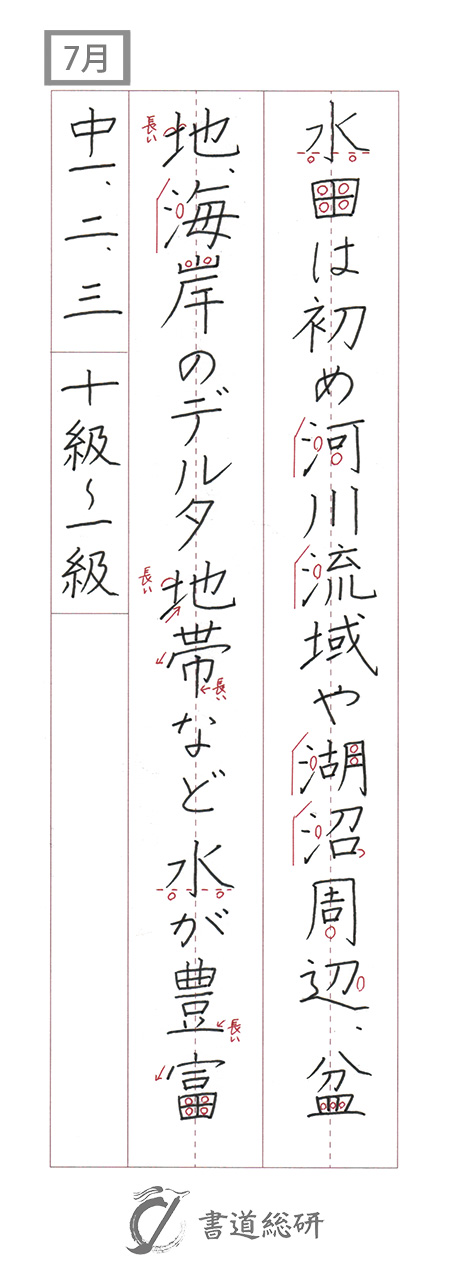 7月
水田は初め河川流域や湖沼周辺、盆
地、海岸のデルタ地帯など水が豊富
長い
長い
長い
長い
中一、二、三
十級〜一級
書道総研